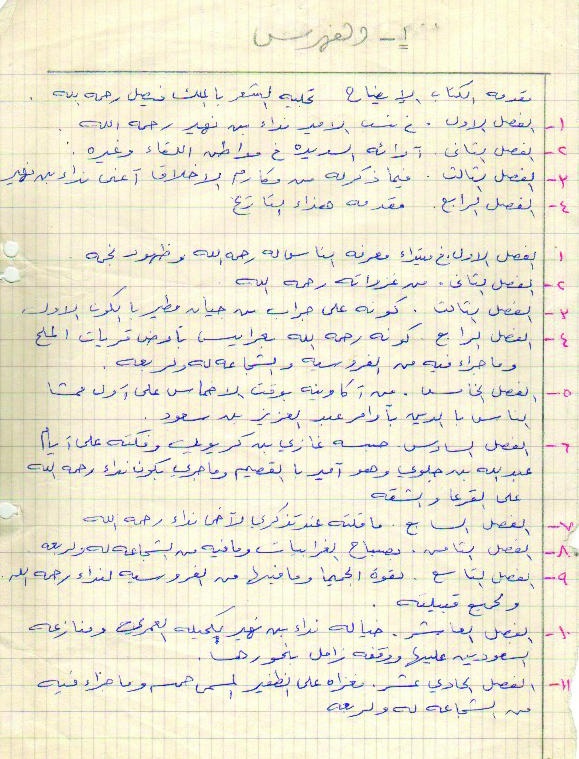 ١- الفهرس
تقدمه الكتاب الإيضاح تحليه الشعر بالملك فيصل رحمه الله .
١- الفصل الاول . في نسب الامير نداء بن نهير رحمه الله .
٢- الفصل الثاني . آرائه السديدة في مواطن اللقاء وغيره .
٣- الفصل الثالث . فيما ذكر له من مكارم الاخلاق أعني نداء بن نهير
٤- الفصل الرابع . مقدمه هذاء التاريخ
١ الفصل الاول . في مبتداء معرفه الناس له رحمه الله وظهور نجمه
٢- الفصل الثاني . من غزواته رحمه الله
٣- الفصل الثالث . كونه على حراب من جيان مطير بالكون الاول
٤- الفصل الرابع . كونه رحمه الله بأرض قريات الملح
وماجراء فيه من الفروسيه والشجاعه له ولربعه .
٥- الفصل الخامس . من آكاوينه بوقت الاخماس على أول ممشا
الناس بالدين بأوامر عبد العزيز بن سعود .
٦- الفصل السادس . غازي بن على آيام
عبد الله بن جلوي وهو آمير بالقصيم وماجرى بكون نداء رحمه الله
على القرعا والشقه
٧- الفصل السابع . ما قلته عند تذكري لآخي نداء رحمه الله
٨- الفصل الثامن . مصباح ومافيه من الشجاعه له ولربعه
٩- الفصل التاسع . لقوة الجميما ومافيها من الفروسيه لنداء رحمه الله .
ولجميع قبيلته .
١٠- الفصل العاشر . حياله نداء بن نهير العمري ومنازعه
السعوديين عليها ووقفه زامل .
١١- الفصل الحادي عشر . مغزاه على الظفير المسمى وماجراء فيه
من الشجاعه له ولربعه